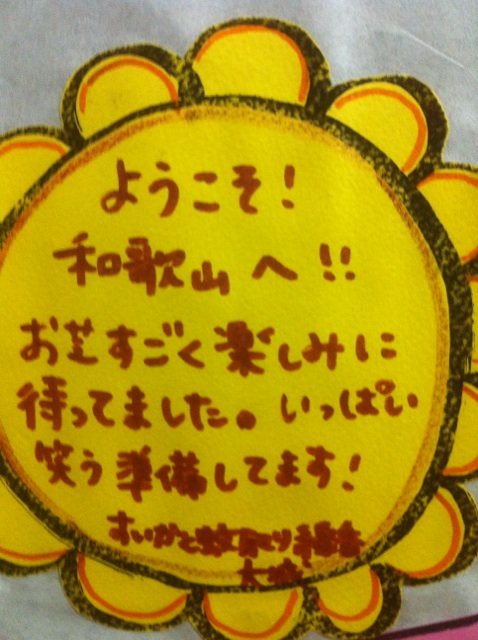 ようこそ！
和歌山へ!!
お芝すごく楽しみに
待ってました。いっぱい
笑う準備してます！
すいかと蚊取り線香